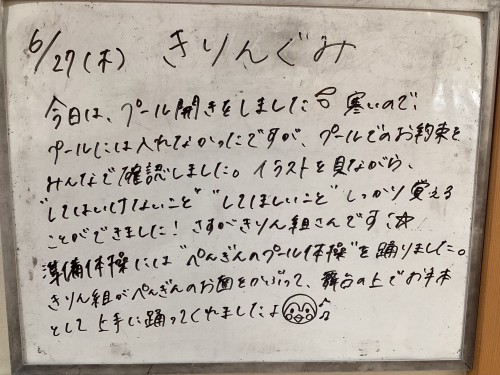 6/27(木) きりんぐみ
今日は、プール開きをしました 寒いので、
プールには入れなかったですが、プールでのお約束を
みんなで確認しました。イラストを見ながら、
"してはいけないこと" "してほしいこと" しっかり覚える
ことができました!さすがきりん組さんです☆
準備体操には"ぺんぎんのプール体操"を踊りました。
きりん組がぺんぎんのお面をかぶって、舞台の上でお手本
として上手に踊ってくれましたよ♪